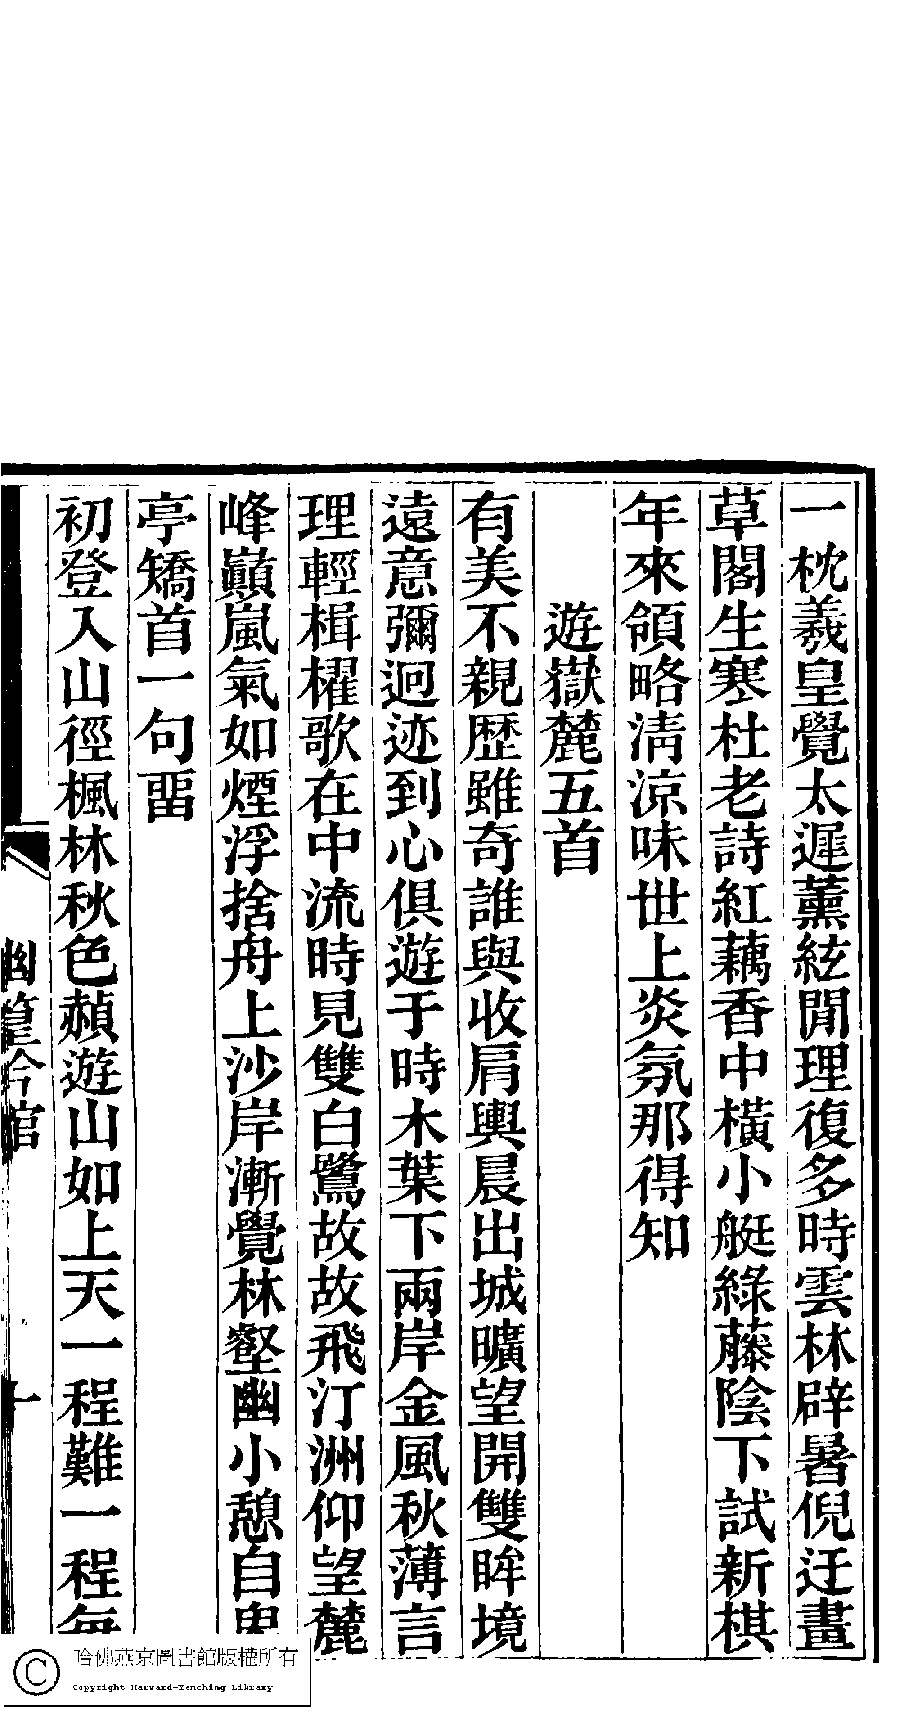 一枕羲皇覺太遲薰絃閒理復多時雲林辟暑倪迂畫
草閣生寒杜老詩紅藕香中橫小艇綠藤陰下試新棋
年來領略清涼味世上炎氛那得知
遊嶽麓五首
有美不親歷雖奇誰與收肩輿晨出城曠望開雙眸境
遠意彌迥迹到心俱遊于時木葉下兩岸金風秋薄言
理輕楫櫂歌在中流時見雙白鷺故故飛汀洲仰望麓
峰巔嵐氣如煙浮捨舟上沙岸漸覺林壑幽小憩自卑
亭矯首一句畱
初登入山徑楓林秋色赬遊山如上天一程難一程每
幽篁吟館
十
哈佛燕京圖書館版權所有
Copyright Harvard-Yenching Library